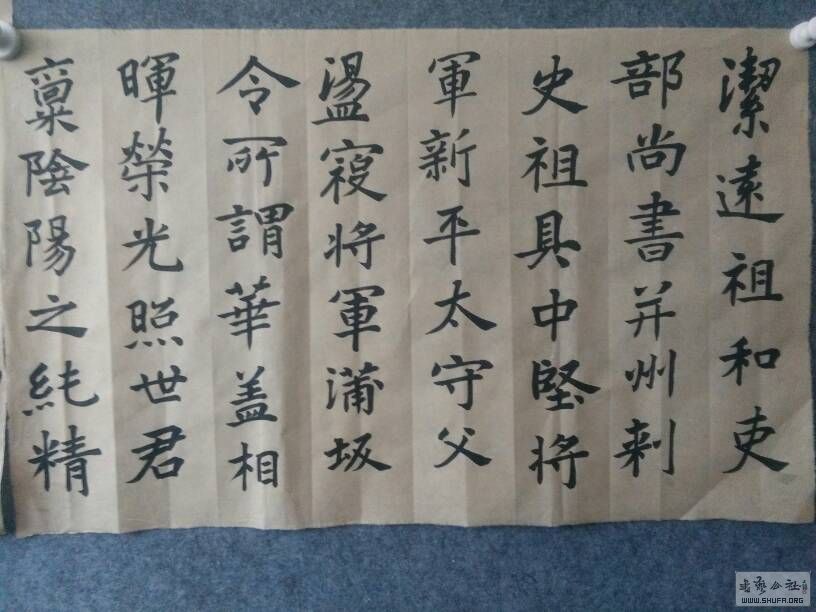 潔遠祖和吏
部尚書并州刺
史祖具中堅將
軍新平太守父
盪寇将軍蒲坂
令所謂華盖相
暉榮光照世君
稟陰陽之純精
书艺公社
WWW.SHUFA.ORG